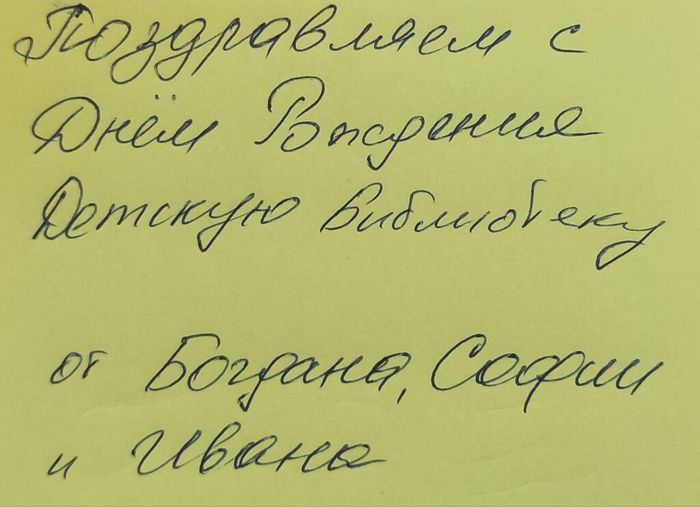 Поздравляем с
Днём Рождения
Детскую библиотеку
от Богдана, Софии
и Ивана